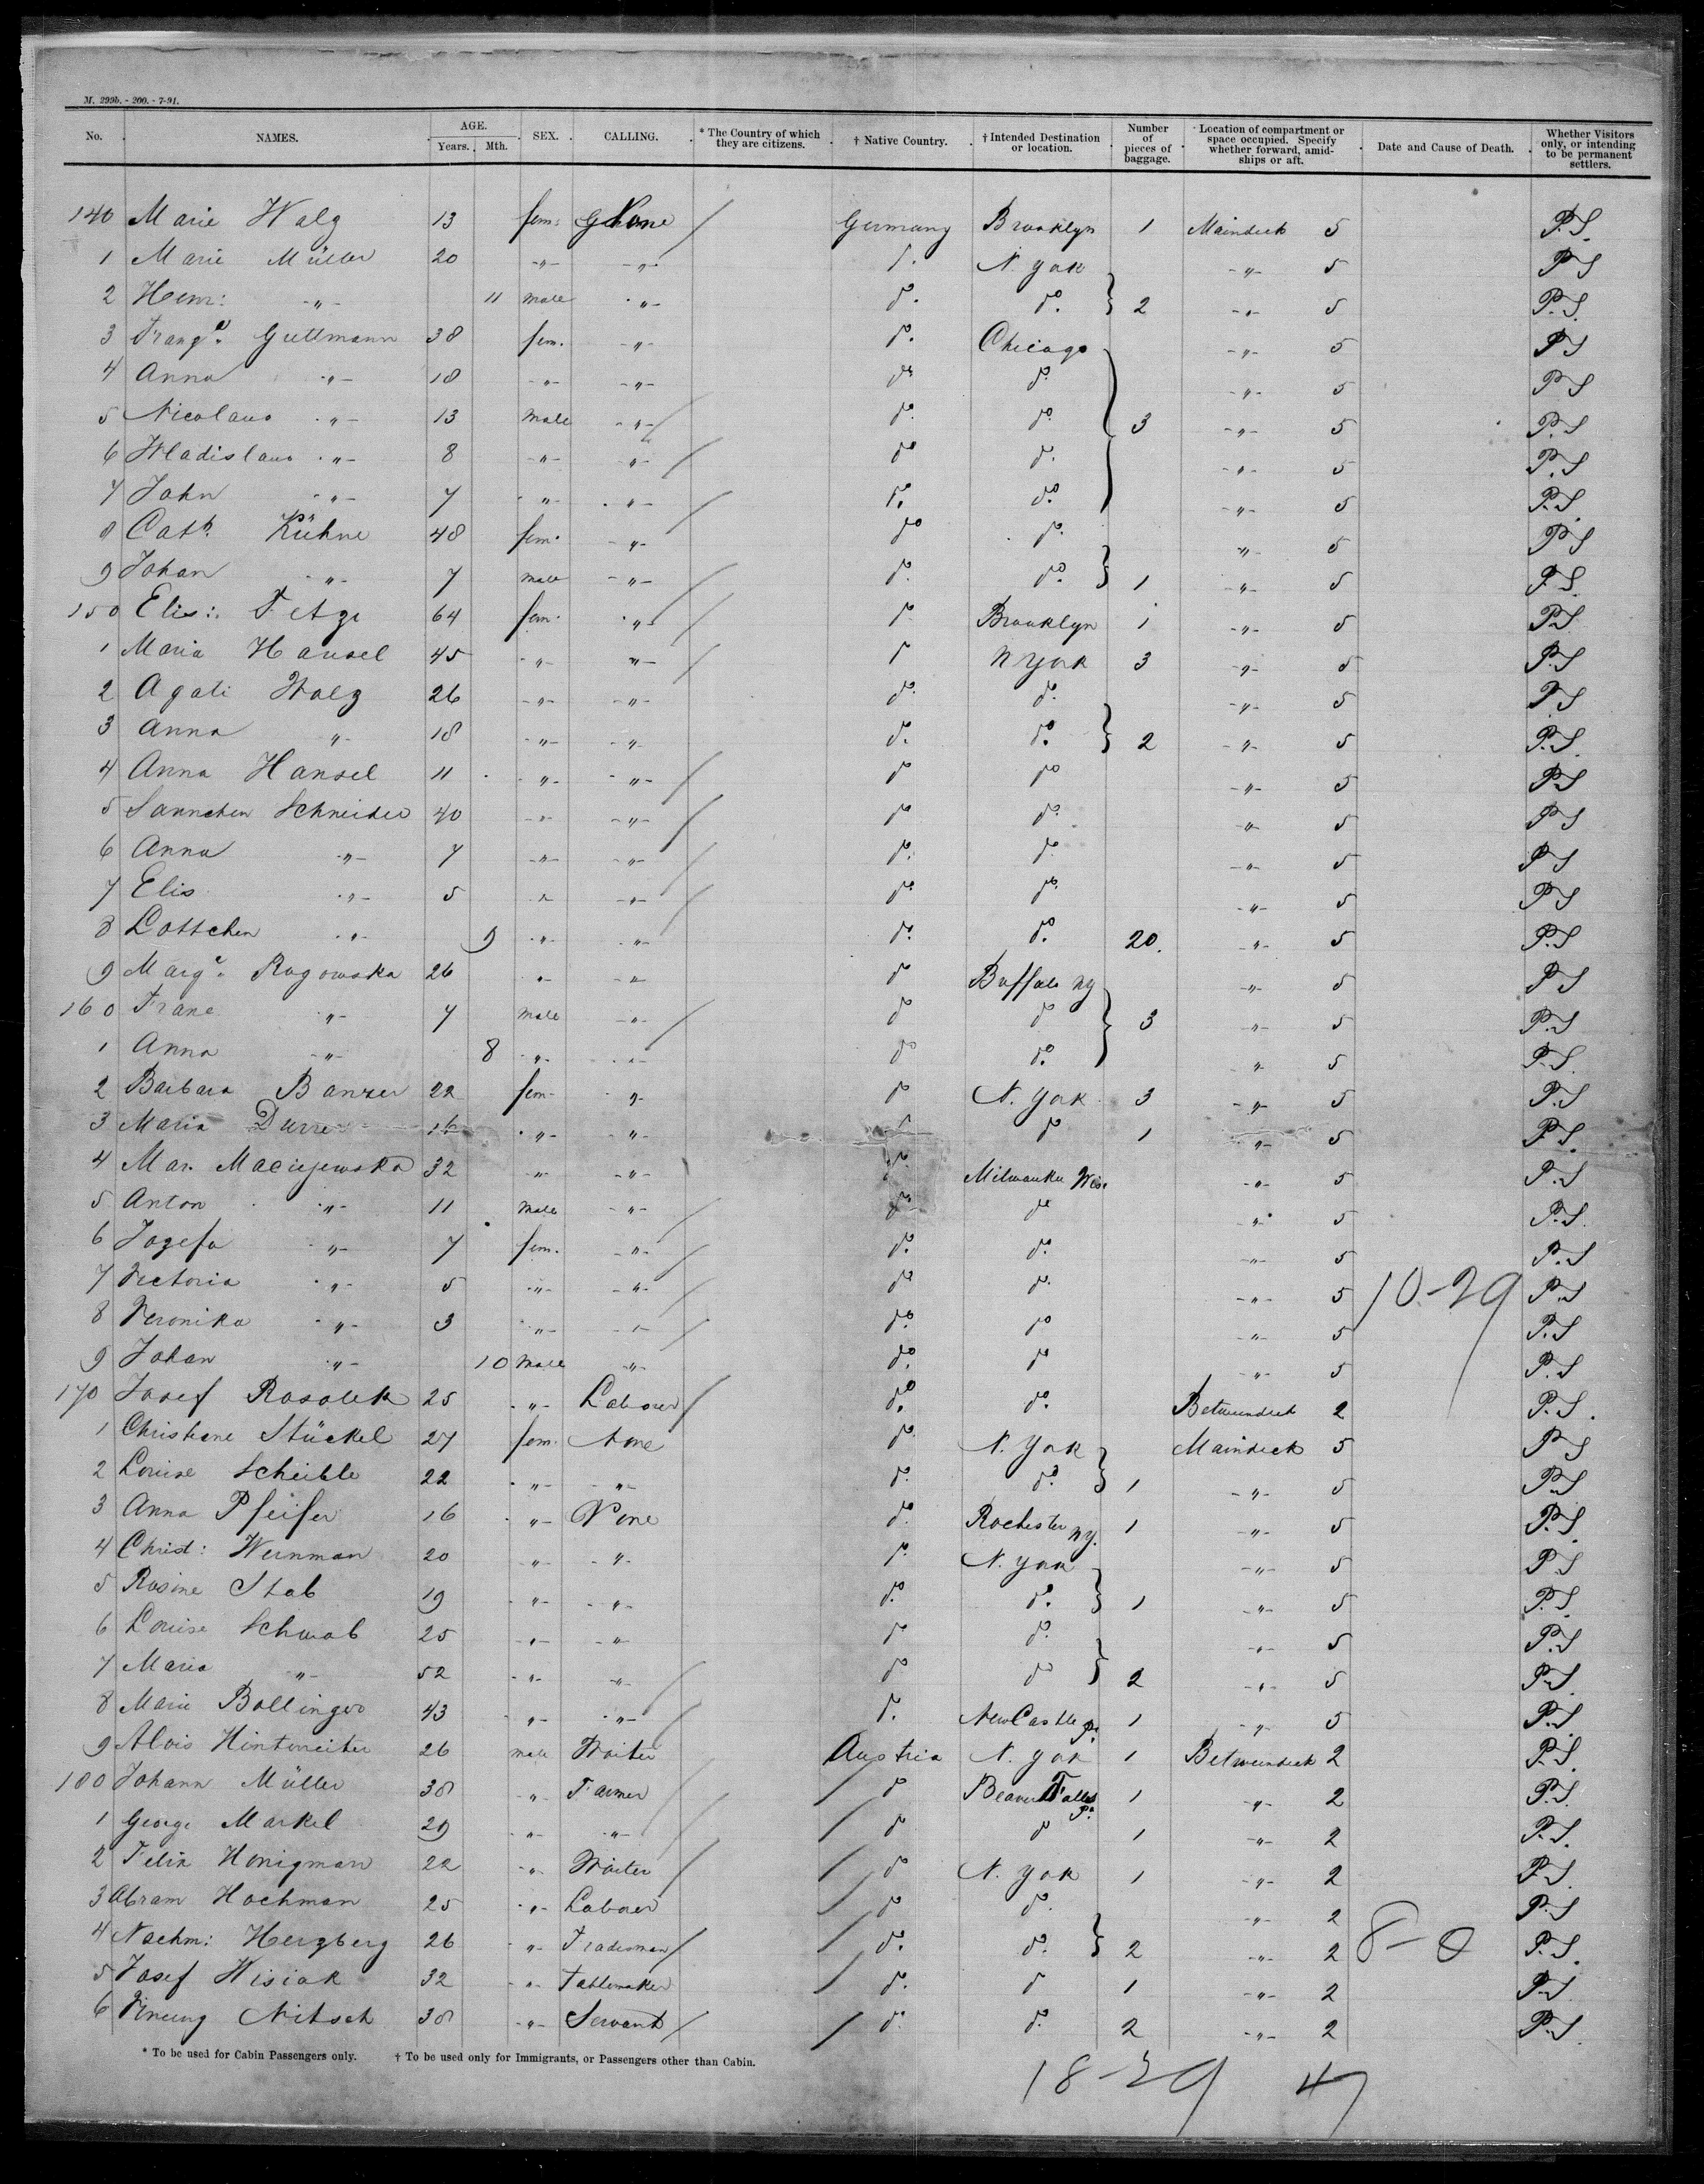 M. 299b. - 200. - 7-91.
No. NAMES. AGE. Years. Mth. SEX. CALLING. * The Country of which they are citizens. † Native Country. † Intended Destination or location. Number of pieces of baggage. Location of compartment or space occupied. Specify whether forward, amidships or aft. Date and Cause of Death. Whether Visitors only, or intending to be permanent settlers.
140 Marie Walz 13 fem: None / Germany Brooklyn 1 Maindeck 5 P.S.
1 Marie Müller 20 -"- -"- do. N. York -"- 5 P.S
2 Heinr: -"- 11 male -"- do. do. } 2 -"- 5 P.S.
3 Frang. Guttmann 38 fem. -"- do. Chicago -"- 5 P.S
4 Anna -"- 18 -"- -"- do do. -"- 5 P.S
5 Nicolaus -"- 13 male -"- / do. do. } 3 -"- 5 P.S
6 Wladislaus -"- 8 -"- -"- / do do. -"- 5 P.S
7 John -"- 7 -"- -"- / do. do. -"- 5 P.S.
8 Cath. Kühne 48 fem. -"- do do. -"- 5 P.S
9 Johan -"- 7 male -"- / do. do. } 1 -"- 5 P.S.
150 Elis: 64 fem. -"- / do Brooklyn 1 -"- 5 P.S
1 Maria Hansel 45 -"- -"- / do N York 3 -"- 5 P.S
2 Agati Walz 26 -"- -"- do. do. -"- 5 P.S
3 Anna -"- 18 -"- -"- do. do. } 2 -"- 5 P.S.
4 Anna Hansel 11 -"- -"- / do do -"- 5 P.S
5 Sannchen Schneider 40 -"- -"- / do do. -"- 5 P.S
6 Anna -"- 7 -"- -"- / do. do. -"- 5 P.S
7 Elis -"- 5 -"- -"- / do. do. -"- 5 P.S
8 Lottchen -"- 9 -"- -"- do. do. 20. -"- 5 P.S
9 Marg. Rogowska 26 -"- -"- do Buffalo NY -"- 5 P.S
160 Franc -"- 7 male -"- / do do } 3 -"- 5 P.S
1 Anna -"- 8 -"- -"- / do do. -"- 5 P.S.
2 Barbara Banzer 22 fem. -"- do N. York 3 -"- 5 P.S
3 Maria Durre 16 -"- -"- do do 1 -"- 5 P.S.
4 Mar. Maciejewska 32 -"- -"- do. Milwaukee Wis. -"- 5 P.S
5 Anton -"- 11 male -"- / do do -"- 5 P.S.
6 Jozefa -"- 7 fem. -"- / do. do. -"- 5 P.S
7 Victoria -"- 5 -"- -"- / do do. -"- 5 10-29 P.S
8 Veronika -"- 3 -"- -"- / do. do -"- 5 P.S
9 Johan -"- 10 male -"- do. do -"- 5 P.S
170 Josef Rosolek 25 -"- Laborer / do. do. Betweendeck 2 P.S.
1 Christiane Stückel 27 fem. None do N. York Maindeck 5 P.S
2 Louise Scheible 22 -"- -"- do. do. } 1 -"- 5 P.S
3 Anna Pfeifer 16 -"- None do. Rochester NY. 1 -"- 5 P.S.
4 Christ: Weinman 20 -"- -"- do. N. York -"- 5 P.S
5 Rosine Stab 19 -"- -"- do. do. } 1 -"- 5 P.S.
6 Louise Schwab 25 -"- -"- do do. -"- 5 P.S
7 Maria -"- 52 -"- -"- / do do } 2 -"- 5 P.S.
8 Marie Bollinger 43 -"- -"- / do. New Castle Pa. 1 -"- 5 P.S
9 Alois Hinterreiter 26 male Waiter / Austria N. York 1 Betweendeck 2 P.S.
180 Johann Müller 38 -"- Farmer / / do Beaver Falls Pa. 1 -"- 2 P.S.
1 George Markel 29 -"- -"- / / do do 1 -"- 2 P.S.
2 Felix Honigman 22 -"- Waiter / / do N. York 1 -"- 2 P.S.
3 Abram Hochman 25 -"- Laborer / do do. -"- 2 P.S
4 Nachm: Herzberg 26 -"- Tradesman / / do. do. } 2 -"- 2 8-0 P.S.
5 Josef Wisiak 32 -"- Tablemaker / do. do 1 -"- 2 P.S
6 Nitsch 38 -"- Servant / / do. do. 2 -"- 2 P.S.
* To be used for Cabin Passengers only. † To be used only for Immigrants, or Passengers other than Cabin.
18-29 47